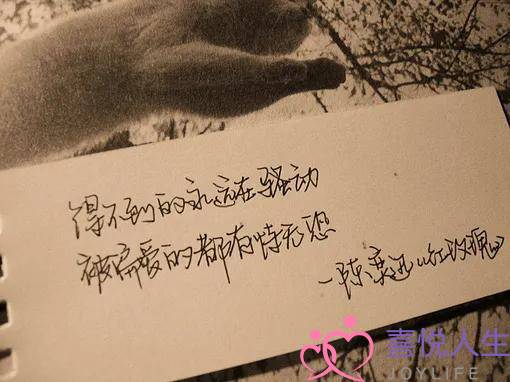 得不到的永远在骚动
被偏爱的都有恃无恐
－陈奕迅《红玫瑰》
喜悦人生
JOYLIFE